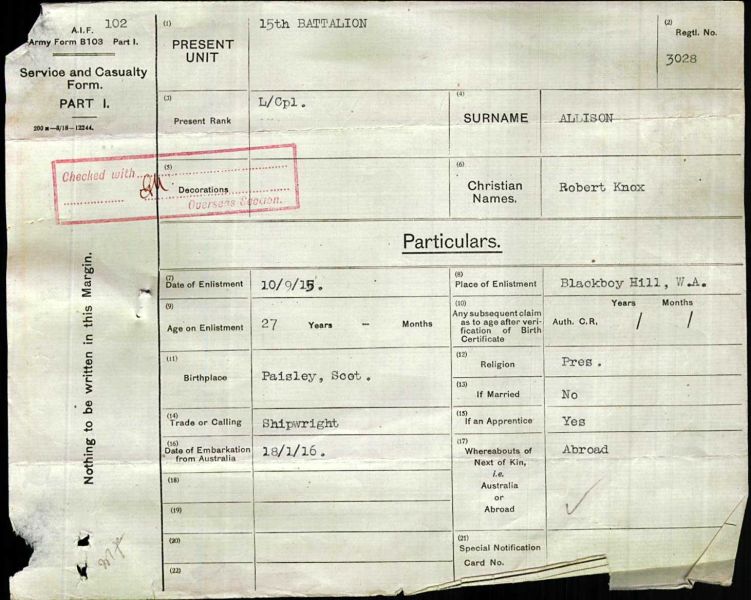 102
A.I.F.
Army Form B103 Part I.
Service and Casualty
Form.
PART I.
200 M—8/18—12244.
Nothing to be written in this Margin.
(1)
PRESENT
UNIT
15th BATTALION
(2)
Regtl. No.
3028
(3)
Present Rank
L/Cpl.
(4)
SURNAME
ALLISON
Checked with
Overseas Section.
(5)
Decorations
(6)
Christian
Names.
Robert Knox
Particulars.
(7)
Date of Enlistment
10/9/15.
(8)
Place of Enlistment
Blackboy Hill, W.A.
(9)
Age on Enlistment
27 Years — Months
(10)
Any subsequent claim
as to age after veri-
fication of Birth
Certificate
Years Months
Auth. C.R. / /
(11)
Birthplace
Paisley, Scot.
(12)
Religion
Pres.
(13)
If Married
No
(14)
Trade or Calling
Shipwright
(15)
If an Apprentice
Yes
(16)
Date of Embarkation
from Australia
18/1/16.
(17)
Whereabouts of
Next of Kin,
i.e.
Australia
or
Abroad
Abroad
(18)
(19)
(20)
(21)
Special Notification
Card No.
(22)